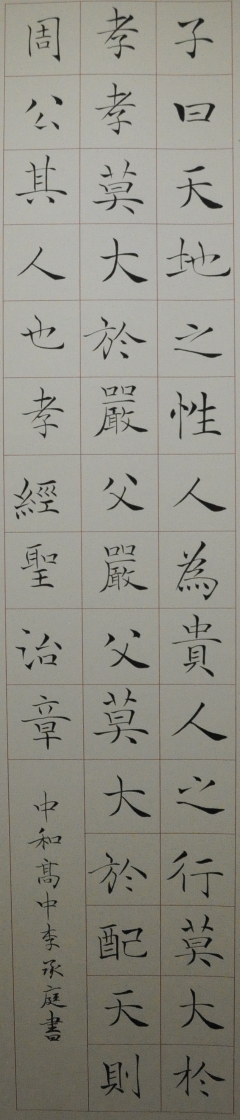 子曰天地之性人為貴人之行莫大於
孝孝莫大於嚴父嚴父莫大於配天則
周公其人也孝經聖治章
中和高中李承庭書